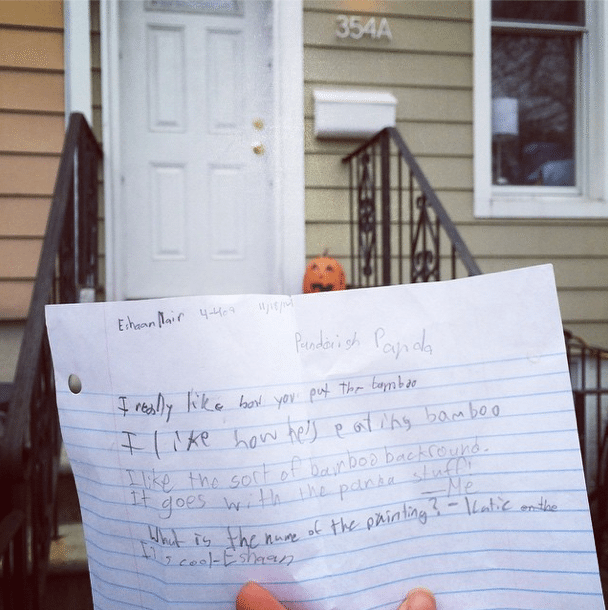 354A
Eshaan Nair 4-409
Pandaish Panda
I really like how you put the bamboo
I like how he's eating bamboo
I like the sort of bamboo backround.
It goes with the panda stuff!
- Me
What is the name of the painting? - Katie on the
It's cool - Eshaan